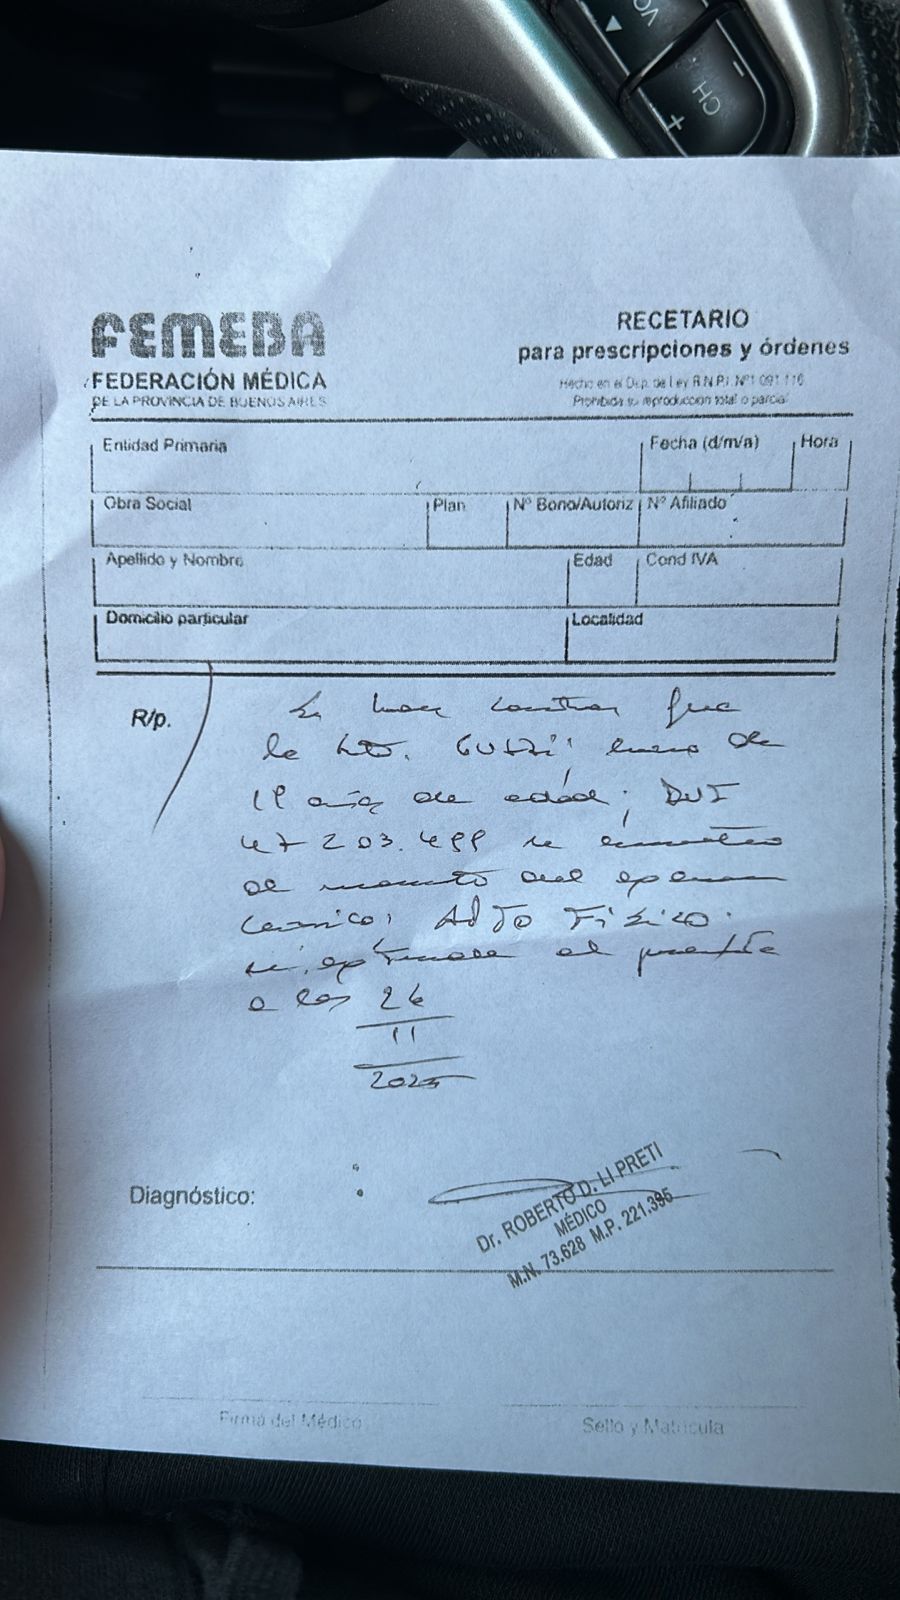 VO
- CH +
FEMEBA
FEDERACIÓN MÉDICA
DE LA PROVINCIA DE BUENOS AIRES
RECETARIO
para prescripciones y órdenes
Hecho en el Dep. de Ley R.N.P.I. Nº1 091 116
Prohibida su reproducción total o parcial
Entidad Primaria
Fecha (d/m/a)
Hora
Obra Social
Plan
Nº Bono/Autoriz
Nº Afiliado
Apellido y Nombre
Edad
Cond IVA
Domicilio particular
Localidad
R/p.
Se hace constar que
la
de
19 años de edad; DNI
47 203.499 se encuentra
al momento del examen
clínico; APTO FISICO.
se extiende el presente
a los 26
11
2025
Diagnóstico:
Dr. ROBERTO D. LI PRETI
MÉDICO
M.N. 73.628 M.P. 221.395
Firma del Médico
Sello y Matrícula